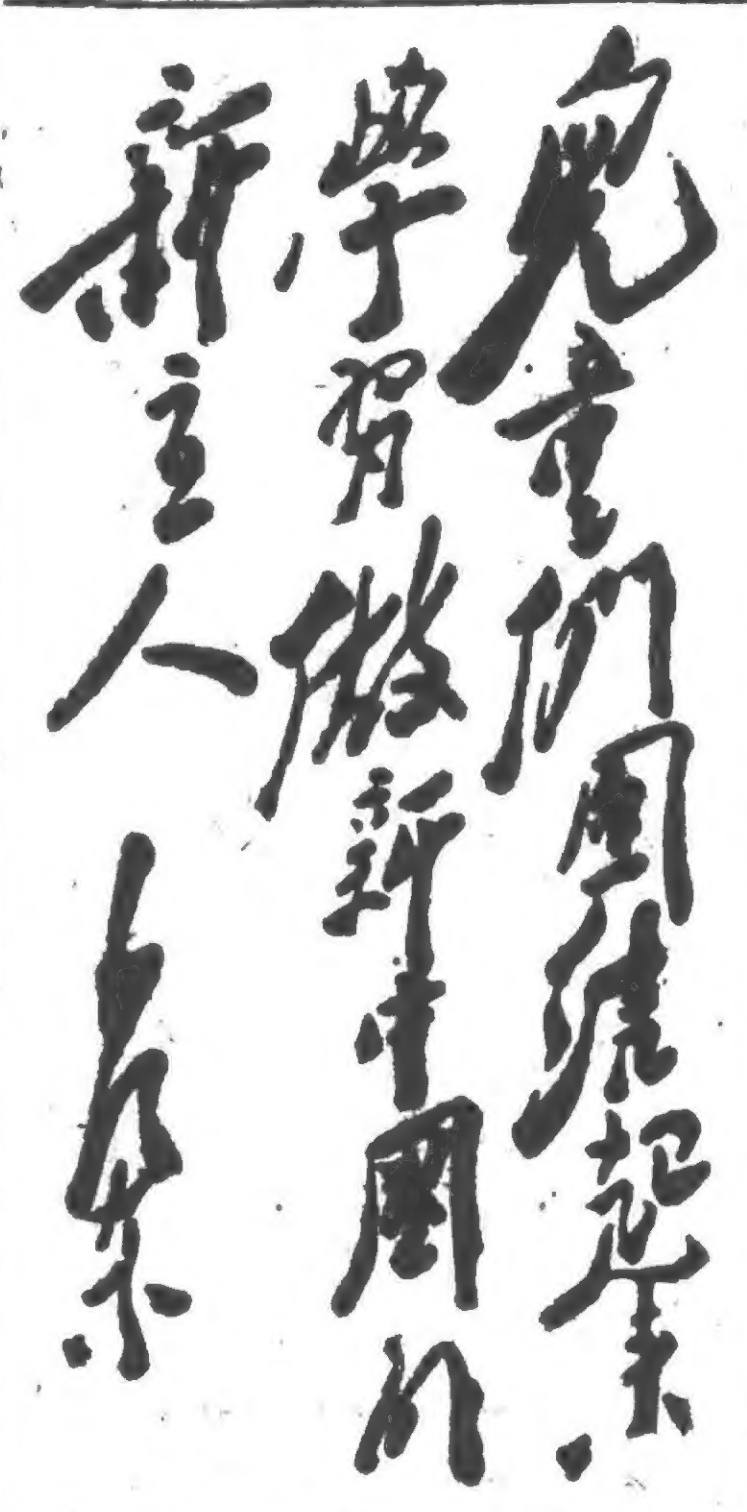 兒童們團結起來、
學習做新中國的
新主人
毛澤東